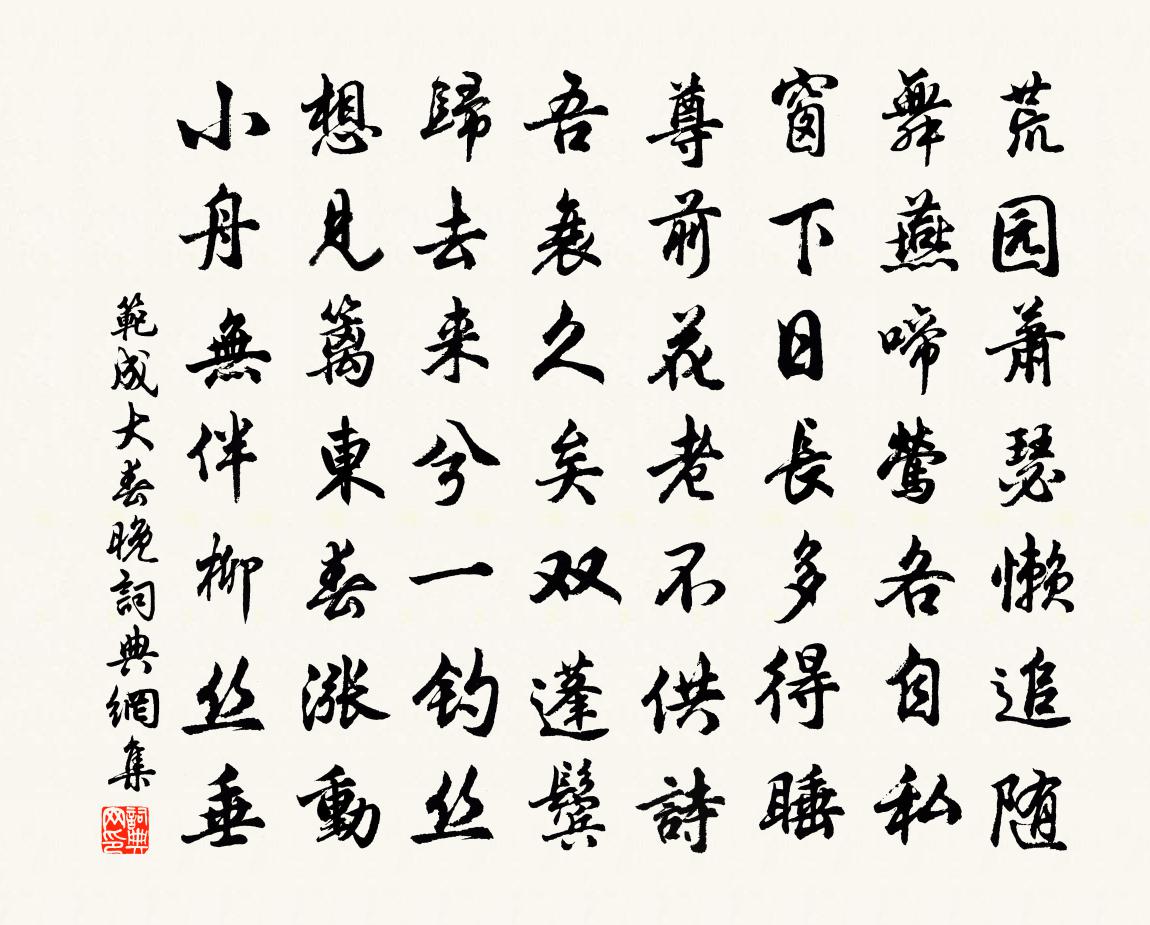 荒园萧瑟懒追随
舞燕啼莺各自私
窗下日長多得睡
尊前花老不供詩
吾衰久矣双蓬鬓
歸去来兮一钓丝
想見篱東春漲動
小舟無伴柳丝垂
範成大春晚詞典網集
詞典网印